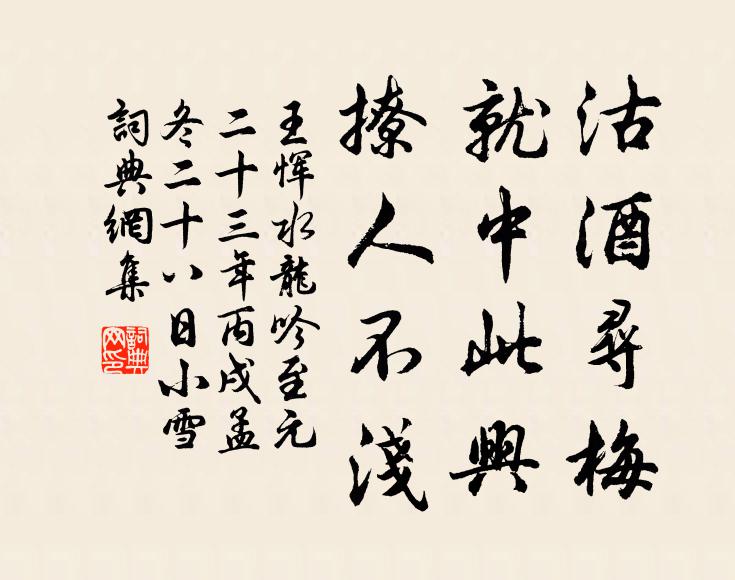 沽酒尋梅
就中此興
撩人不淺
王惲水龍吟至元
二十三年丙戌孟
冬二十八日小雪
詞典網集
詞典網印